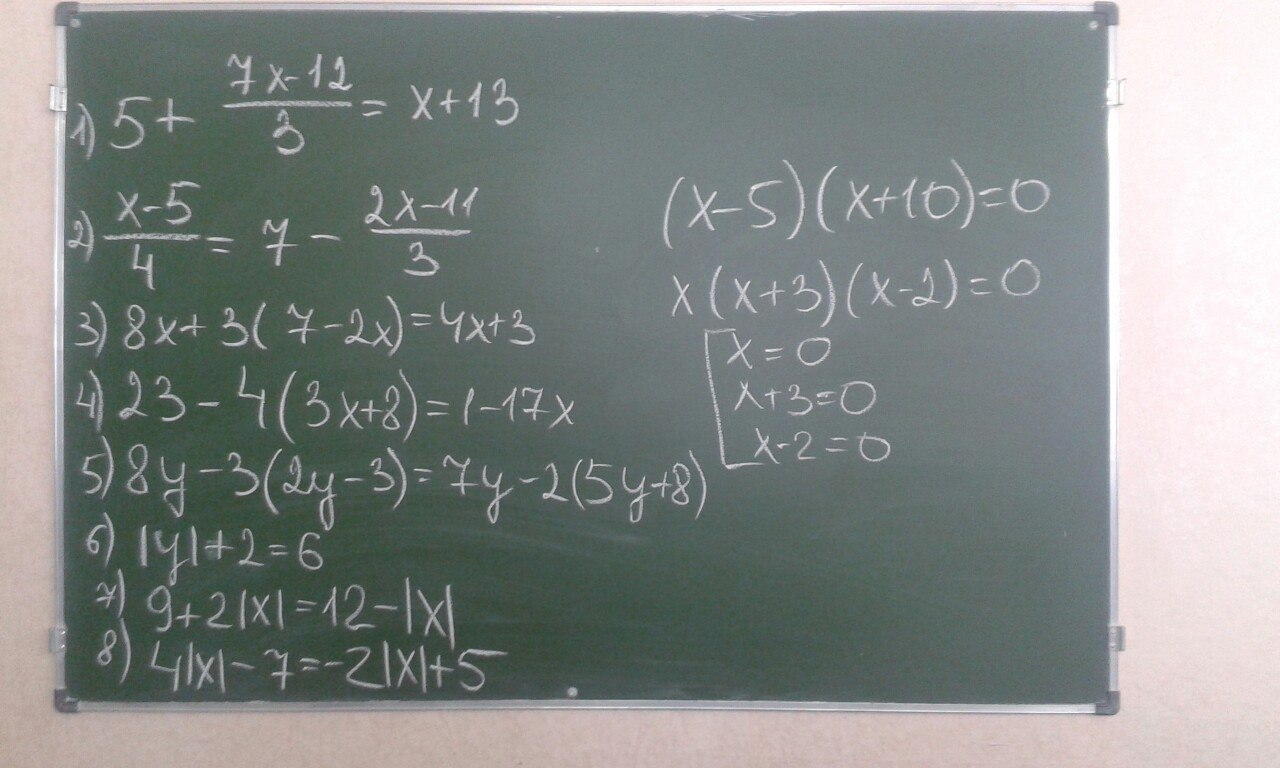 1) 5 + (7x-12)/3 = x+13
2) (x-5)/4 = 7 - (2x-11)/3
3) 8x+3(7-2x)=4x+3
4) 23-4(3x+8)=1-17x
5) 8y-3(2y-3)=7y-2(5y+8)
6) |y|+2=6
7) 9+2|x|=12-|x|
8) 4|x|-7=-2|x|+5
(x-5)(x+10)=0
x(x+3)(x-2)=0
x=0
x+3=0
x-2=0